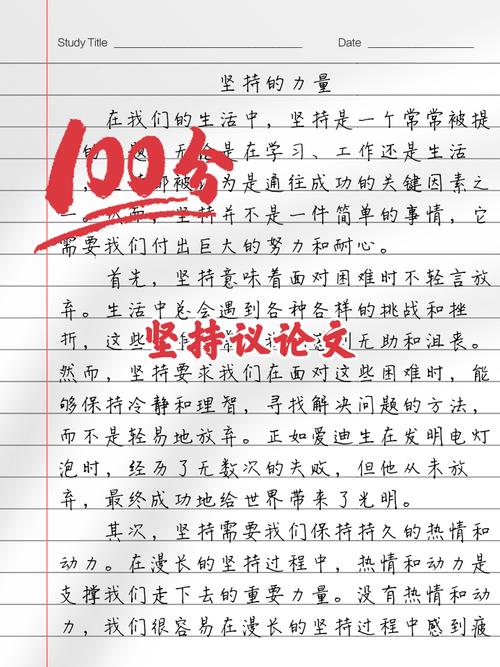 Study Title
Date
坚持的力量
在我们的生活中，坚持是一个常常被提
100分
是在学习、工作还是生活
为是通往成功的关键因素之
一。然而，坚持并不是一件简单的事情，它
需要我们付出巨大的努力和耐心。
首先，坚持意味着面对困难时不轻言放
弃。生活中总会遇到各种各样的挑战和挫
折，这些
无助和沮丧。
坚持议论文
然而，坚持要求我们在面对这些困难时，能
够保持冷静和理智，寻找解决问题的方法，
而不是轻易地放弃。正如爱迪生在发明电灯
泡时，经历了无数次的失败，但他从未放
弃，最终成功地给世界带来了光明。
其次，坚持需要我们保持持久的热情和
动力。在漫长的坚持过程中，热情和动力是
支撑我们走下去的重要力量。没有热情和动
力，我们很容易在漫长的坚持过程中感到疲